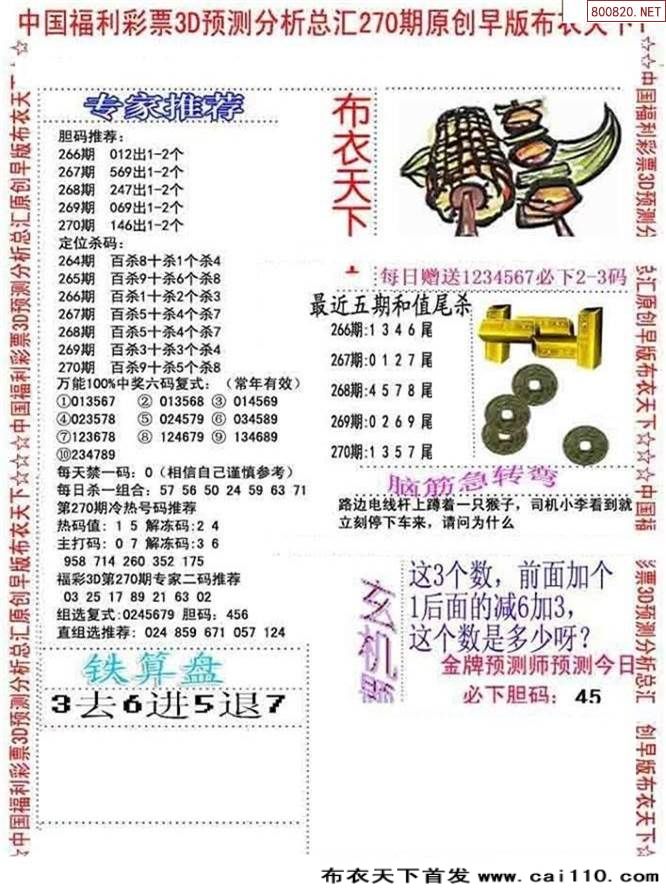 800820.NET
中国福利彩票3D预测分析总汇270期原创早版布衣天下
专家推荐
胆码推荐:
266期 012出1-2个
267期 569出1-2个
268期 247出1-2个
269期 069出1-2个
270期 146出1-2个
定位杀码:
264期 百杀8十杀1个杀4
265期 百杀9十杀6个杀8
266期 百杀1十杀2个杀3
267期 百杀5十杀4个杀7
268期 百杀4十杀4个杀7
269期 百杀3十杀3个杀4
270期 百杀9十杀5个杀8
万能100%中奖六码复式:（常年有效）
①013567 ② 013568 ③ 014569
④023578 ⑤ 024579 ⑥ 034589
⑦123678 ⑧ 124679 ⑨ 134689
⑩234789
每天禁一码: 0（相信自己谨慎参考）
每日杀一组合: 57 56 50 24 59 63 71
第270期冷热号码推荐
热码值: 1 5 解冻码: 2 4
主打码: 0 7 解冻码: 3 6
958 714 260 352 175
福彩3D第270期专家二码推荐
03 25 17 89 21 63 02
组选复式: 0245679 胆码: 456
直组选推荐: 024 859 671 057 124
铁算盘
3去6进5退7
布衣天下
每日赠送1234567必下2-3码
最近五期和值尾杀
266期: 1 3 4 6 尾
267期: 0 1 2 7 尾
268期: 4 5 7 8 尾
269期: 0 2 6 9 尾
270期: 1 3 5 7 尾
脑筋急转弯
路边电线杆上蹲着一只猴子，司机小李看到就
立刻停下车来，请问为什么
玄机
这3个数，前面加个
1后面的减6加3，
这个数是多少呀？
金牌预测师预测今日
必下胆码: 45
☆中国福利彩票3D预测分析总汇原创早版布衣天下☆☆☆中国福利彩票3D预测分析总汇原创早版布衣天下
☆☆中国福利彩票3D预测分
总汇原创早版布衣天下☆☆☆中国福
彩票3D预测分析总汇
创早版布衣天下☆☆
布衣天下首发 www.cai110.com